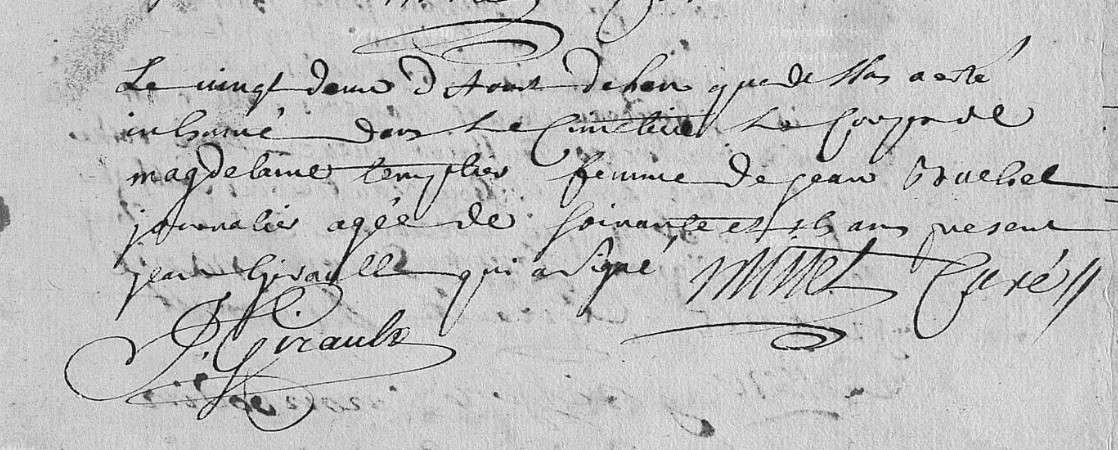 Le vingt deux d'Aout
a esté
inhumé dans Le Cimetiere Le Corps de
magdelaine templier femme de jean
journalier agée de soixante et ans present
jean Girault qui a signé Curé
J. Girault